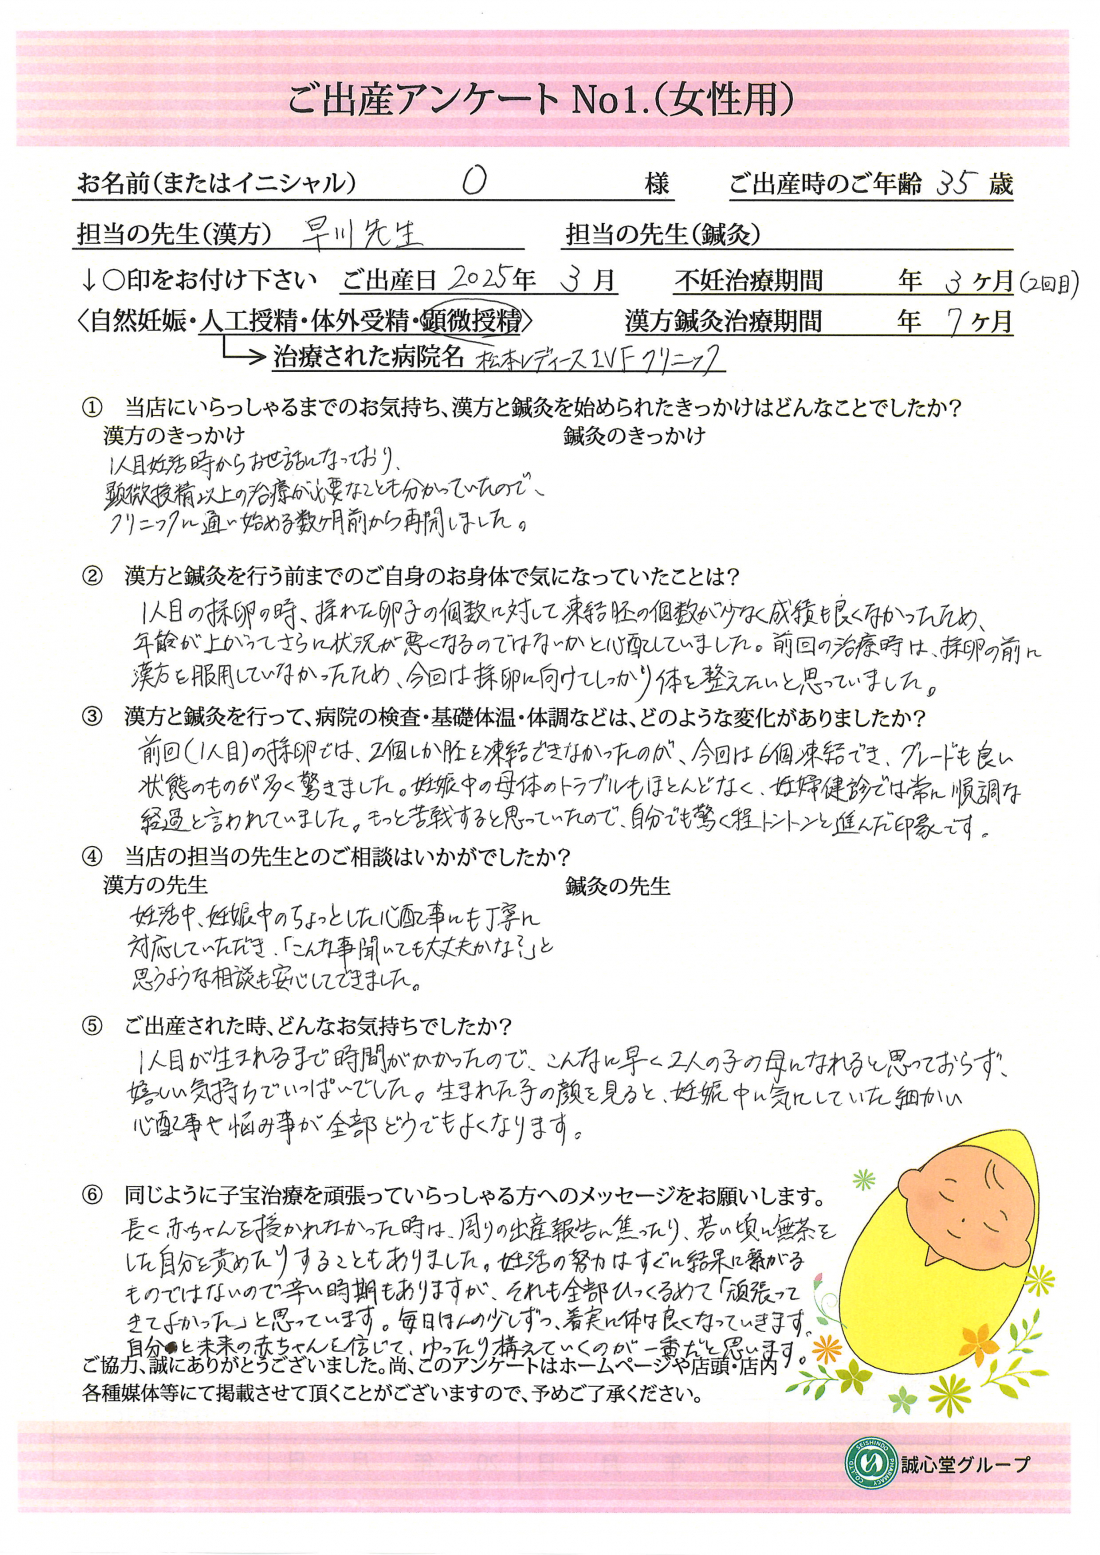 ご出産アンケート No1.(女性用)
お名前(またはイニシャル) O 様 ご出産時のご年齢 35 歳
担当の先生(漢方) 早川先生 担当の先生(鍼灸)
↓○印をお付け下さい ご出産日 2025年 3月 不妊治療期間 年 3ヶ月(2回目)
〈自然妊娠・人工授精・体外受精・顕微授精〉 漢方鍼灸治療期間 年 7ヶ月
→治療された病院名 松本レディースIVFクリニック
① 当店にいらっしゃるまでのお気持ち、漢方と鍼灸を始められたきっかけはどんなことでしたか?
漢方のきっかけ 鍼灸のきっかけ
1人目妊活時からお世話になっており、
顕微授精以上の治療が必要なことも分かっていたので、
クリニックに通い始める数ヶ月前から再開しました。
② 漢方と鍼灸を行う前までのご自身のお身体で気になっていたことは?
1人目の採卵の時、採れた卵子の個数に対して凍結胚の個数が少なく成績も良くなかったため、
年齢が上がってさらに状況が悪くなるのではないかと心配していました。前回の治療時は、採卵の前に
漢方を服用していなかったため、今回は採卵に向けてしっかり体を整えたいと思っていました。
③ 漢方と鍼灸を行って、病院の検査・基礎体温・体調などは、どのような変化がありましたか?
前回(1人目)の採卵では、2個しか胚を凍結できなかったのが、今回は6個凍結でき、グレードも良い
状態のものが多く驚きました。妊娠中の母体のトラブルもほとんどなく、妊婦健診では常に順調な
経過と言われていました。もっと苦戦すると思っていたので、自分でも驚く程トントンと進んだ印象です。
④ 当店の担当の先生とのご相談はいかがでしたか?
漢方の先生 鍼灸の先生
妊活中、妊娠中のちょっとした心配事にも丁寧に
対応していただき、「こんな事聞いても大丈夫かな?」と
思うような相談も安心してできました。
⑤ ご出産された時、どんなお気持ちでしたか?
1人目が生まれるまで時間がかかったので、こんなに早く2人の子の母になれると思っておらず、
嬉しい気持ちでいっぱいでした。生まれた子の顔を見ると、妊娠中に気にしていた細かい
心配事や悩み事が全部どうでもよくなります。
⑥ 同じように子宝治療を頑張っていらっしゃる方へのメッセージをお願いします。
長く赤ちゃんを授かれなかった時は、周りの出産報告に焦ったり、若い頃に無茶を
した自分を責めたりすることもありました。妊活の努力はすぐに結果に繋がる
ものではないので辛い時期もありますが、それも全部ひっくるめて「頑張って
きてよかった」と思っています。毎日ほんの少しずつ、着実に体は良くなっていきます。
自分と未来の赤ちゃんを信じて、ゆったり構えていくのが一番だと思います。
ご協力、誠にありがとうございました。尚、このアンケートはホームページや店頭・店内
各種媒体等にて掲載させて頂くことがございますので、予めご了承ください。
SEISHINDO PHARMACY CO.,LTD 誠心堂グループ